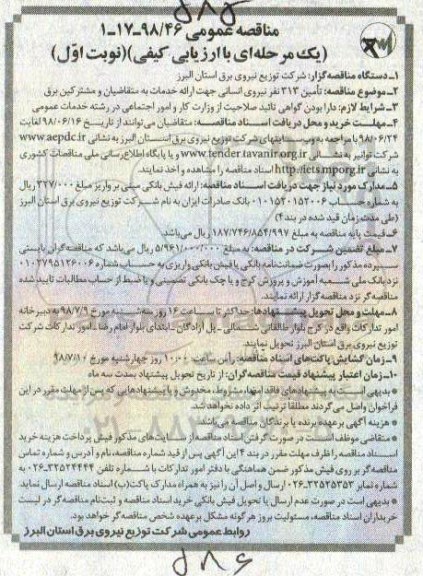 مناقصه عمومی ۹۸/۴۶-۱۷-۱
(یک مرحله‌ای با ارزیابی کیفی)(نوبت اوّل)
۱ـ دستگاه مناقصه‌گزار: شرکت توزیع نیروی برق استان البرز
۲ـ موضوع مناقصه: تأمین ۳۱۳ نفر نیروی انسانی جهت ارائه خدمات به متقاضیان و مشترکین برق
۳ـ شرایط لازم: دارا بودن گواهی تائید صلاحیت از وزارت کار و امور اجتماعی در رشته خدمات عمومی
۴ـ مهلت خرید و محل دریافت اسناد مناقصه: متقاضیان می‌توانند از تاریخ ۹۸/۰۶/۱۶ لغایت
۹۸/۰۶/۲۴ با مراجعه به وب سایتهای شرکت توزیع نیروی برق استان البرز به نشانی www.aepdc.ir
شرکت توانیر به نشانی www.tender.tavanir.org.ir و یا پایگاه اطلاع‌رسانی ملی مناقصات کشوری
به نشانی http://iets.mporg.ir اسناد مناقصه را مشاهده و اخذ نمایند.
۵ـ مدارک مورد نیاز جهت دریافت اسناد مناقصه: ارائه فیش بانکی مبنی بر واریز مبلغ ۳۲۷/۰۰۰ ریال
به شماره حساب ۰۱۰۱۵۳۰۱۵۲۰۰۶ بانک صادرات ایران به نام شرکت توزیع نیروی برق استان البرز
(طی مدت زمان قید شده در بند ۴)
۶ـ قیمت پایه مناقصه به مبلغ ۱۸۷/۷۴۶/۸۵۴/۹۹۷ ریال می‌باشد.
۷ـ مبلغ تضمین شرکت در مناقصه: به مبلغ ۵/۹۶۱/۰۰۰/۰۰۰ ریال می‌باشد که مناقصه‌گران بایستی
سپرده مذکور را بصورت ضمانت‌نامه بانکی یا فیش بانکی واریزی به حساب شماره ۰۱۰۲۷۹۵۱۲۶۰۰۶
نزد بانک ملی شعبه آموزش و پرورش کرج و یا چک بانکی تضمینی و یا ضبط از حساب مطالبات تایید شده
مناقصه‌گر نزد مناقصه‌گزار ارائه نمایند.
۸ـ مهلت و محل تحویل پیشنهادها: حداکثر تا ساعت ۱۶ روز سه‌شنبه مورخ ۹۸/۷/۹ به دبیرخانه
امور تدارکات واقع در کرج بلوار طالقانی شمالی ـ پل آزادگان ـ ابتدای بلوار امام رضا ـ امور تدارکات شرکت
توزیع نیروی برق استان البرز تحویل نمایند.
۹ـ زمان گشایش پاکت‌های اسناد مناقصه: رأس ساعت ۱۰:۰۰ روز چهارشنبه مورخ ۹۸/۷/۱۰
۱۰ـ زمان اعتبار پیشنهاد قیمت مناقصه‌گران: از تاریخ تحویل پیشنهاد بمدت سه ماه
* بدیهی است به پیشنهادهای فاقد امضاء، مشروط، مخدوش و یا پیشنهادهایی که پس از مهلت مقرر در این
فراخوان واصل می‌گردند مطلقا ترتیب اثر داده نخواهد شد.
* هزینه آگهی برعهده برنده یا برندگان مناقصه می‌باشد.
* متقاضی موظف است در صورت گرفتن اسناد مناقصه از سایت‌های مذکور فیش پرداخت هزینه خرید
اسناد مناقصه را ظرف مهلت مقرر در بند ۴ این آگهی پس از قید شماره مناقصه، نام و آدرس و شماره تماس
مناقصه‌گر بر روی فیش مذکور ضمن هماهنگی با دفتر امور تدارکات با شماره تلفن ۳۲۵۲۴۴۴۴-۰۲۶ به
شماره نمابر ۳۲۵۲۵۳۵۳-۰۲۶ ارسال و اصل آن را نیز به همراه مدارک پاکت(ب) اسناد مناقصه ارسال نماید.
* بدیهی است در صورت عدم ارسال یا تحویل فیش بانکی خرید اسناد مناقصه و ثبت‌نام مناقصه‌گر در لیست
خریداران اسناد مناقصه، مسئولیت بروز هر گونه مشکل برعهده شخص مناقصه‌گر خواهد بود.
روابط عمومی شرکت توزیع نیروی برق استان البرز